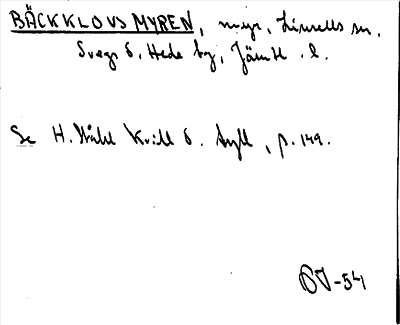 BÄCKKLOVSMYREN, myr, Linsells sn,
Svegs o. Hede tg, Jämtl. l.
Se H. Ståhl Kvill o. Syll, p. 149.
OJ-54